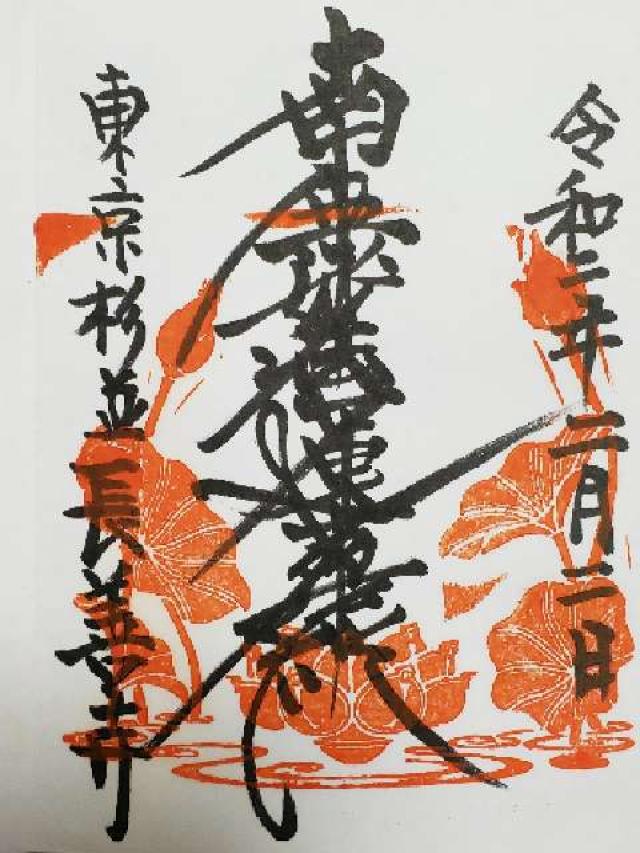 令和二年二月二日
南無妙法蓮華経
東京杉並長善寺